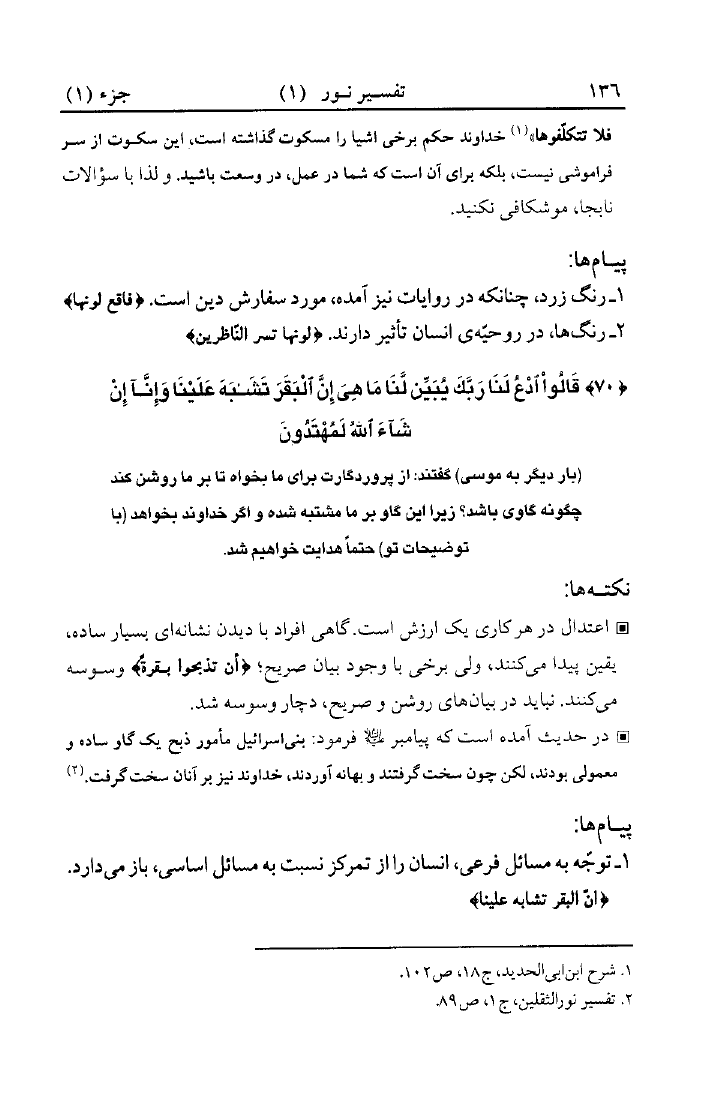 ۱۳۶ تفسیر نور (۱) جزء (۱)
فلا تتکلّفوها»(۱) خداوند حکم برخی اشیا را مسکوت گذاشته است، این سکوت از سر
فراموشی نیست، بلکه برای آن است که شما در عمل، در وسعت باشید. و لذا با سؤالات
نابجا، موشکافی نکنید.
پیام‌ها:
۱ـ رنگ زرد، چنانکه در روایات نیز آمده، مورد سفارش دین است. ﴿فاقع لونها﴾
۲ـ رنگ‌ها، در روحیّه‌ی انسان تأثیر دارند. ﴿لونها تسر النّاظرین﴾
﴿۷۰﴾ قَالُواْ ٱدْعُ لَنَا رَبَّكَ يُبَيِّن لَّنَا مَا هِىَ إِنَّ ٱلْبَقَرَ تَشَـٰبَهَ عَلَيْنَا وَإِنَّـآ إِن
شَآءَ ٱللهُ لَمُهْتَدُونَ
(بار دیگر به موسی) گفتند: از پروردگارت برای ما بخواه تا بر ما روشن کند
چگونه گاوی باشد؟ زیرا این گاو بر ما مشتبه شده و اگر خداوند بخواهد (با
توضیحات تو) حتماً هدایت خواهیم شد.
نکته‌ها:
▣ اعتدال در هر کاری یک ارزش است. گاهی افراد با دیدن نشانه‌ای بسیار ساده،
یقین پیدا می‌کنند، ولی برخی با وجود بیان صریح؛ ﴿أن تذبحوا بقرة﴾ وسوسه
می‌کنند. نباید در بیان‌های روشن و صریح، دچار وسوسه شد.
▣ در حدیث آمده است که پیامبر ﷺ فرمود: بنی‌اسرائیل مأمور ذبح یک گاو ساده و
معمولی بودند، لکن چون سخت گرفتند و بهانه آوردند، خداوند نیز بر آنان سخت گرفت.(۲)
پیام‌ها:
۱ـ توجّه به مسائل فرعی، انسان را از تمرکز نسبت به مسائل اساسی، باز می‌دارد.
﴿انّ البقر تشابه علینا﴾
۱. شرح ابن‌ابی‌الحدید، ج۱۸، ص۱۰۲.
۲. تفسیر نورالثقلین، ج۱، ص۸۹.